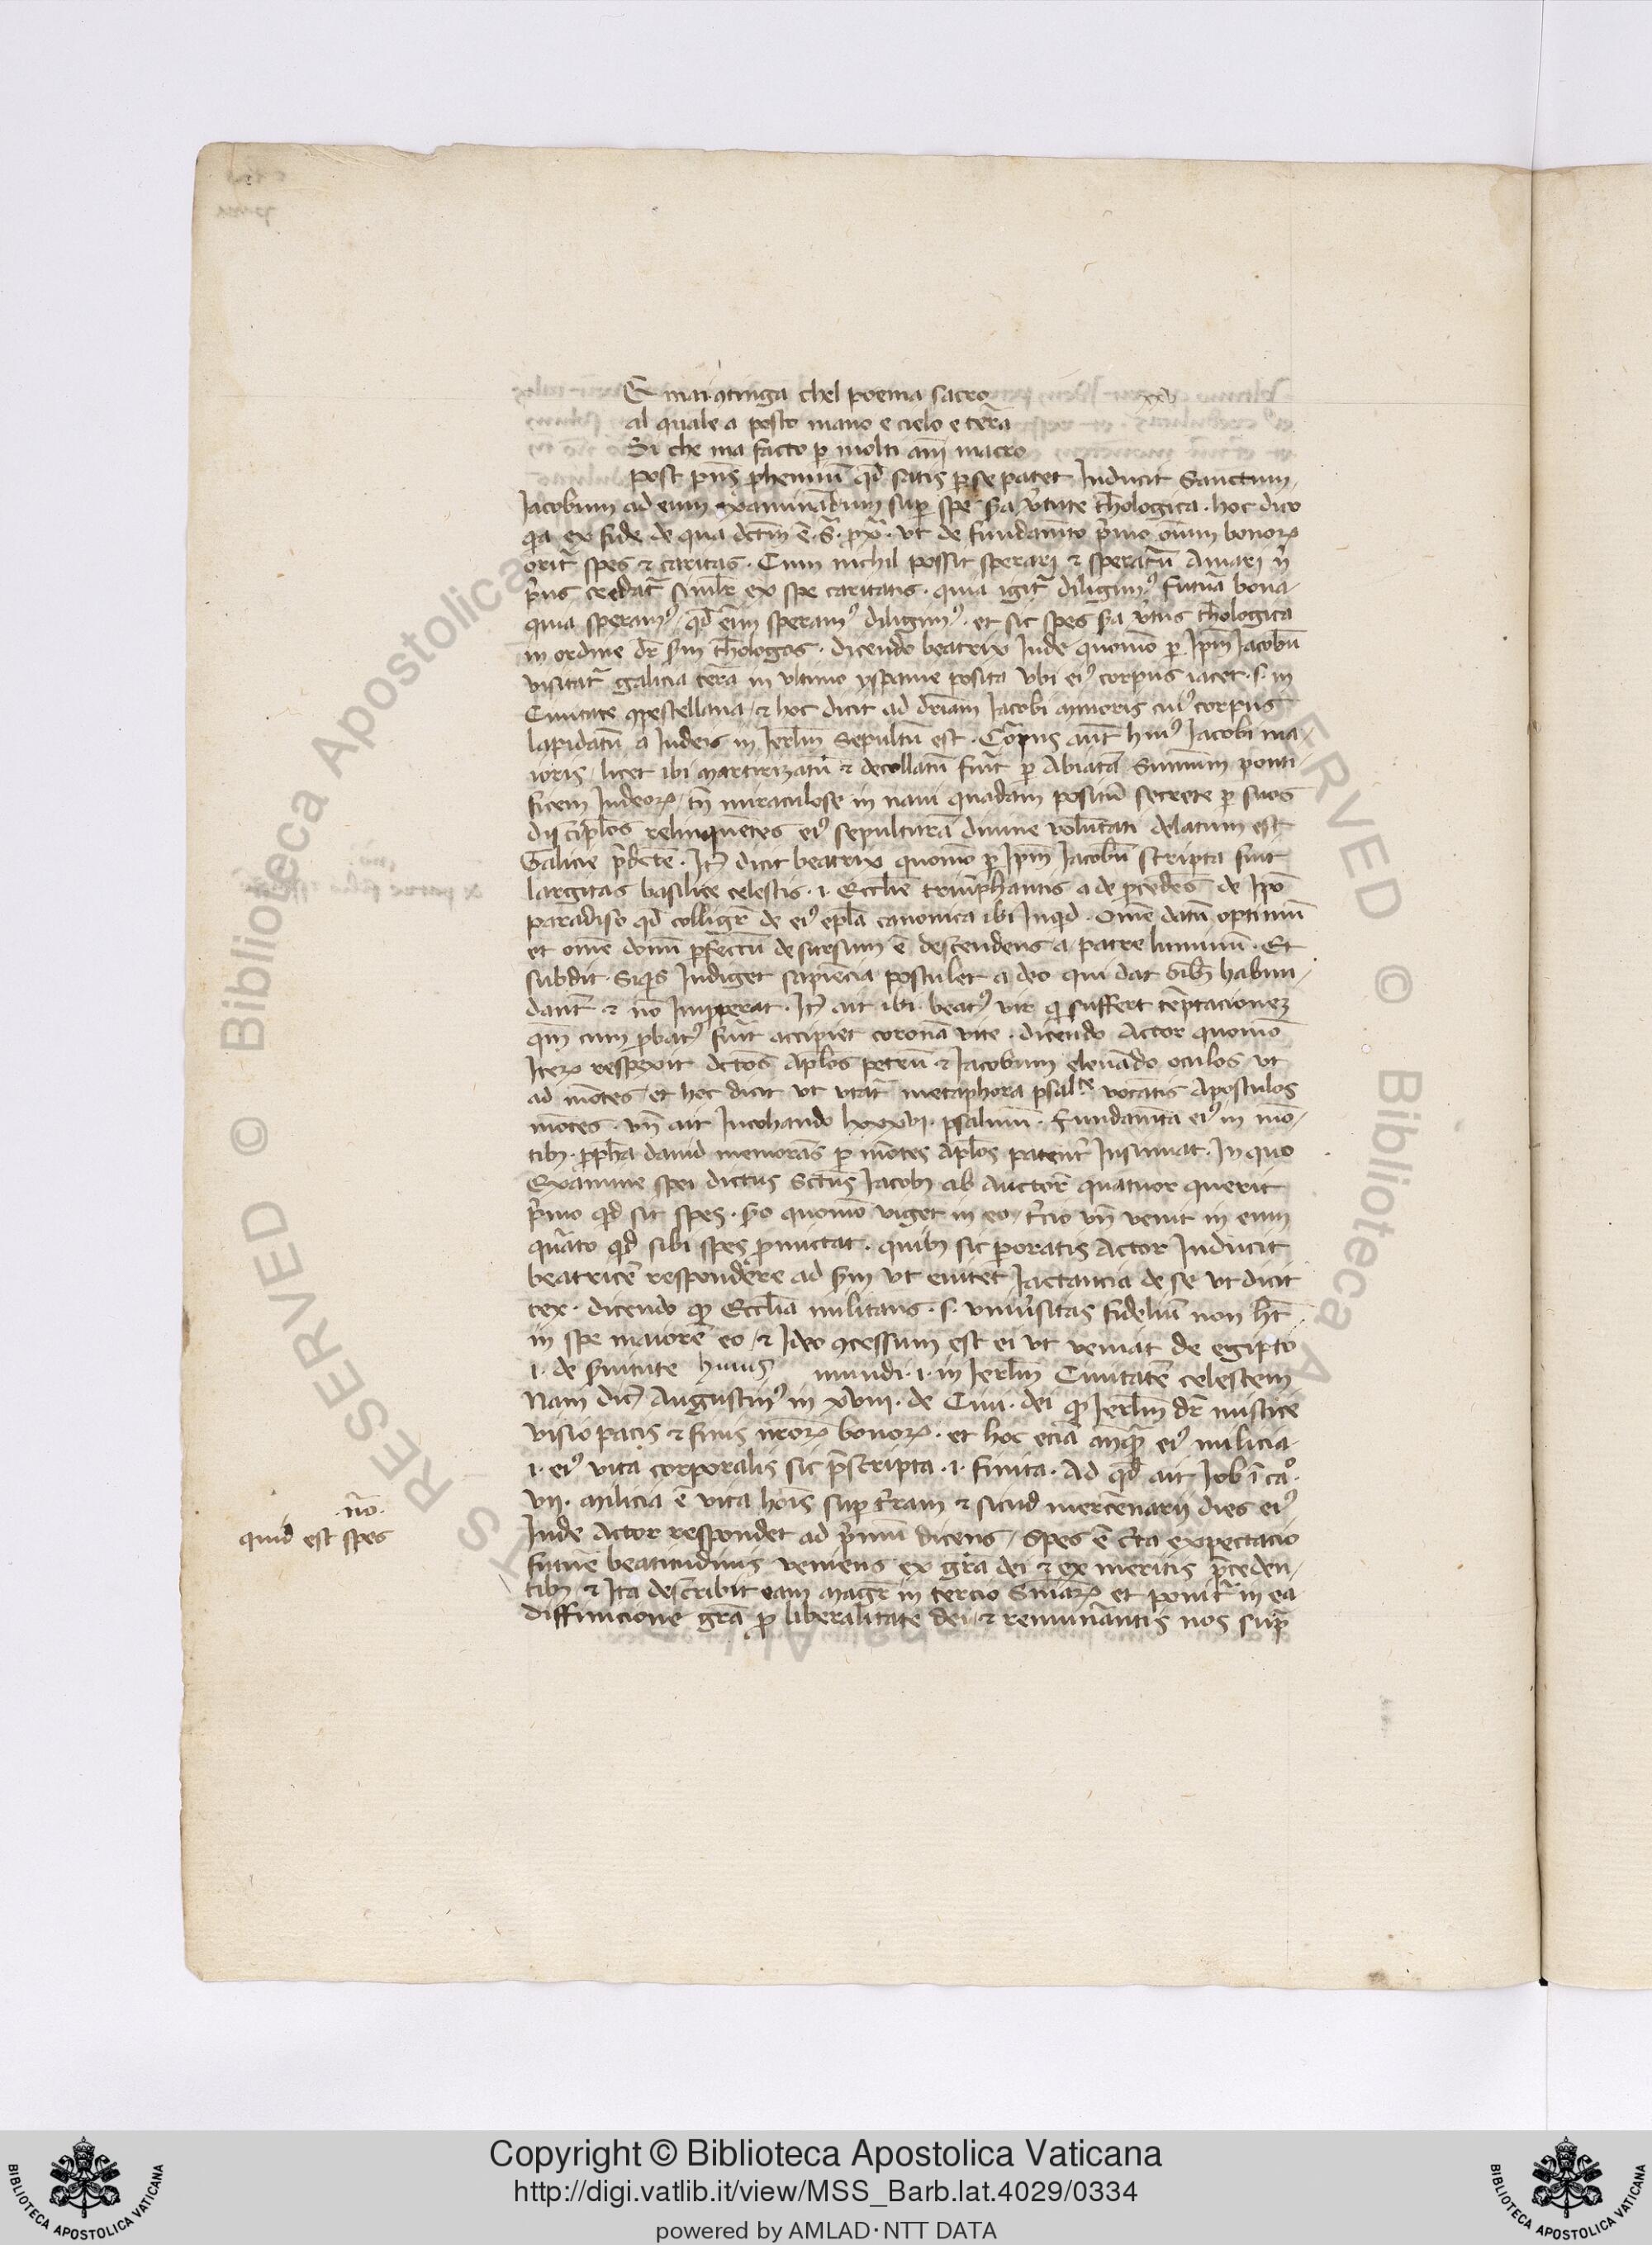 E mai atinga chel poema sacro xxv
al quale a posto mano e cielo e terra
Si che ma facto ꝑ molti anni macro
post pñs ꝓhemiũ qd satis per se patet Inducit Sanctum
Jacobum ad eum examinandum suꝑ spe sc̃da v̾tute theologica . hoc dico
qa ex fide de qua dictm̃ ẽ . S̃ . px̃ . vt de fundamẽto p̾mo oĩum bonoꝝ
orit̃ spes et caritas . Cum nichil possit sperari et speratũ Amari ñ
p̾us credat̃ simĩlr ex spe caritatis . quia igit̃ diligimꝰ futura bona
quia speramꝰ / qd eñim speramꝰ diligimꝰ . et sic spes sc̃da v̾tus theologica
in ordine dr̃ sm̃ theologos . dicendo beatrix Inde quomõ ꝑ Ipm̃ Jacobũ
visitat̃ galicia terra in vltimo yspanie posita vbi eiꝰ corpus iacet . s . in
Ciuitate ꝯpostellana / et hoc dicit ad drĩam Jacobi minoris cuiꝰ corpus
lapidatũ a Iudeis in Ierlm̃ Sepultũ est . Corpus aut̃ huiꝰ Jacobi ma
ioris / licet ibi martirizatũ et decollatũ fuit ꝑ Abiatã Summum ponti
ficem Iudeoꝝ / tñ miraculose in naui quadam positũ secrete ꝑ suos
discipĩos relinquentes eiꝰ sepulturã diuine volũtati delatum est
Galicie p̾dictẽ . It̃ dicit beatrix quomõ ꝑ Ipm̃ Jacobũ scripta fuit
largitas basilice celestis . i . Ecclĩe triũphantis a de procedẽs de Ipõ
paradiso qd colligit̃ de eiꝰ epl̃a canonica ibi Inqd . Omẽ datũ optimũ
et omẽ donũ ꝑfectũ desursum ẽ descendens a patre luminũ . Et
subdit . Siqs Indiget sapiẽcia postulet a deo qui dat oĩbꝫ habun
dant̃ et nõ Impperat . It̃ ait ibi . beatꝰ vir q suffert tẽptacionem
qm̃ cum ꝓbatꝰ fuit accipiet coronã vite . dicendo Actor quomõ
Iteꝝ respexit dictos apl̃os petrũ et Iacobum eleuãdo oculos vt
ad mõtes / et hoc dicit vt vtat̃ metaphora psalte vocãtis Apostolos
mõtes . vñ ait Incohando lxxxvi . psalmũ . Fundamẽta eiꝰ in mõ
tibꝫ . ꝓph̃a dauid memorãs ꝑ mõtes apl̃os patent̃ Insinuat . In quo
Examine spei dictus Sctũs Jacobꝫ ab Auctorẽ quatuor querit
p̾mo qd sit spes . sc̃do quomõ viget in eo / t̾cio vñ venit in eum
quarto qd sibi spes ꝓmictat . quibꝫ sic ꝑoratis Actor Inducit
beatricẽ respondere ad sm̃ vt euitet Iactancia de se vt dicit
tex . dicendo qꝫ Eccl̃ia militans . s . vniu̾sitas fideliũ non ht̃
in spe maiorẽ eo / et Ideo ꝯcessum est ei vt veniat de egipto
i . de s̾uitute huius mundi . i . in Ierlm̃ Ciuitatẽ celestem
Nam dic̃ Augustinꝰ in xviii . de Ciui . dei qꝫ Ierlm̃ dr̃ mistice
visio pacis et finis nr̃oꝝ bonoꝝ . et hoc eciã anqꝫ eiꝰ milicia
i . eiꝰ vita corporalis sic p̃scripta . i . finita . Ad qd ait Iob ĩ cao .
vii . milicia ẽ vita hoĩs suꝑ t̾ram et sicud mercẽnarij dies eiꝰ
Inde Actor respondet ad p̾mũ dicens / Spes ẽ c̾ta expectacio
future beatitudinis veniens ex gr̃a dei et ex meritis p̃ceden
tibꝫ et Ita describit eam magr̃ in tercio Sniãꝝ et ponit̃ in ea
diffinicione grã ꝓ liberalitate dei / et remun̾antis nos suꝑ
.nõ.
quid est spes
Copyright © Biblioteca Apostolica Vaticana
http://digi.vatlib.it/view/MSS_Barb.lat.4029/0334
powered by AMLAD·NTT DATA